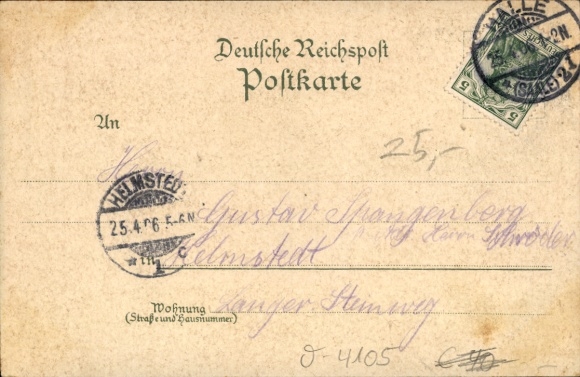 Deutsche Reichspost
Postkarte
HALLE
2N.
*(SAALE) 2 f
5 5
An
25,-
Herrn
HELMSTEDT
25.4.06 5-6N
* 1 c
Gustav Spangenberg
Herrn Schröder
Helmstedt
Langer Steinweg
Wohnung
(Straße und Hausnummer)
J-4105